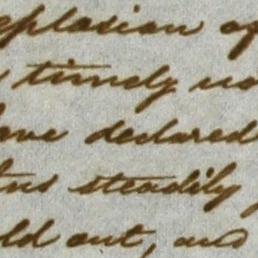 explosion of
timely
have declared
steadily
old out, and